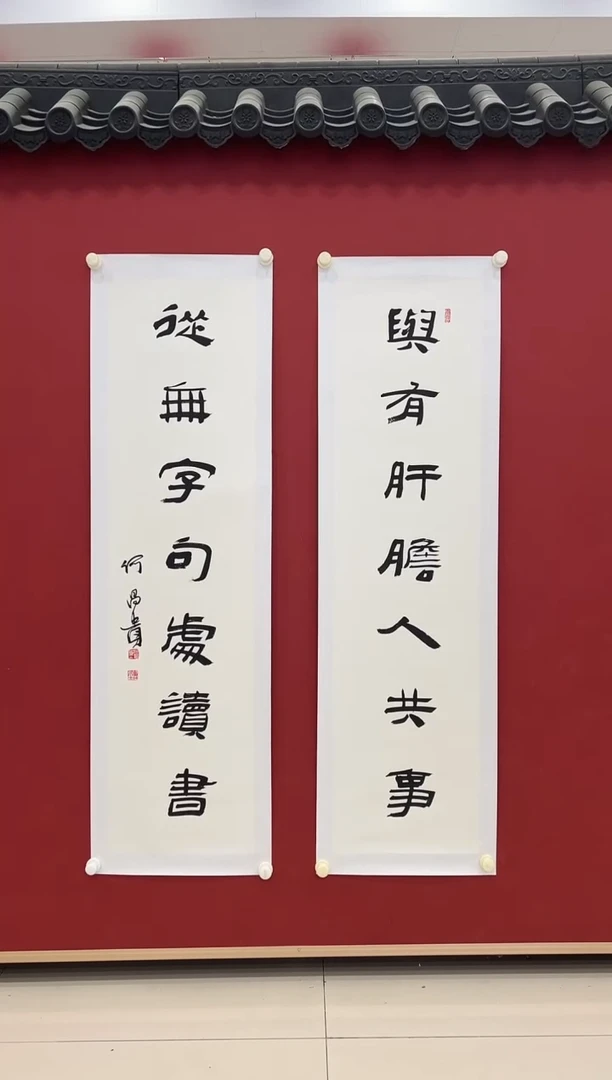 與有肝膽人共事
從無字句處讀書
何昌貴